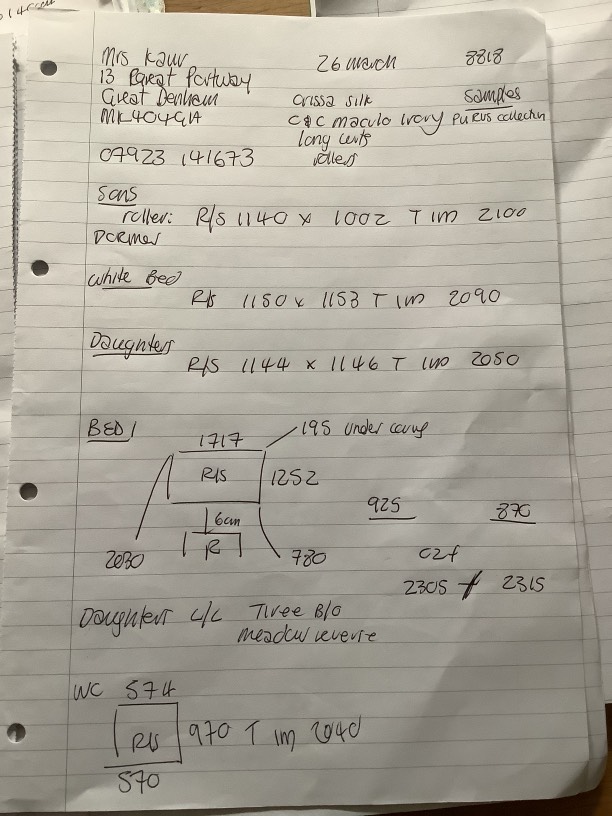 Mrs Kaur
26 march
8818
13 Pargat Portway
Great Denham
MK404GIA
07923 141673
Orissa silk
C&C maculo Ivory
long cents
rollers
samples
PURUS collection
Sons
roller: R/S 1140 x 1002 T im 2100
Dormer
White Bed
R/S 1150 x 1153 T im 2090
Daughters
R/S 1144 x 1146 T im 2050
BED 1
1717
195 under
R/S
1252
6cm
R
2030
780
925
870
c2f
2305 / 2315
Daughters L/L Tiree B/O
meadow reverse
WC 574
R/S 970 T im 2040
570